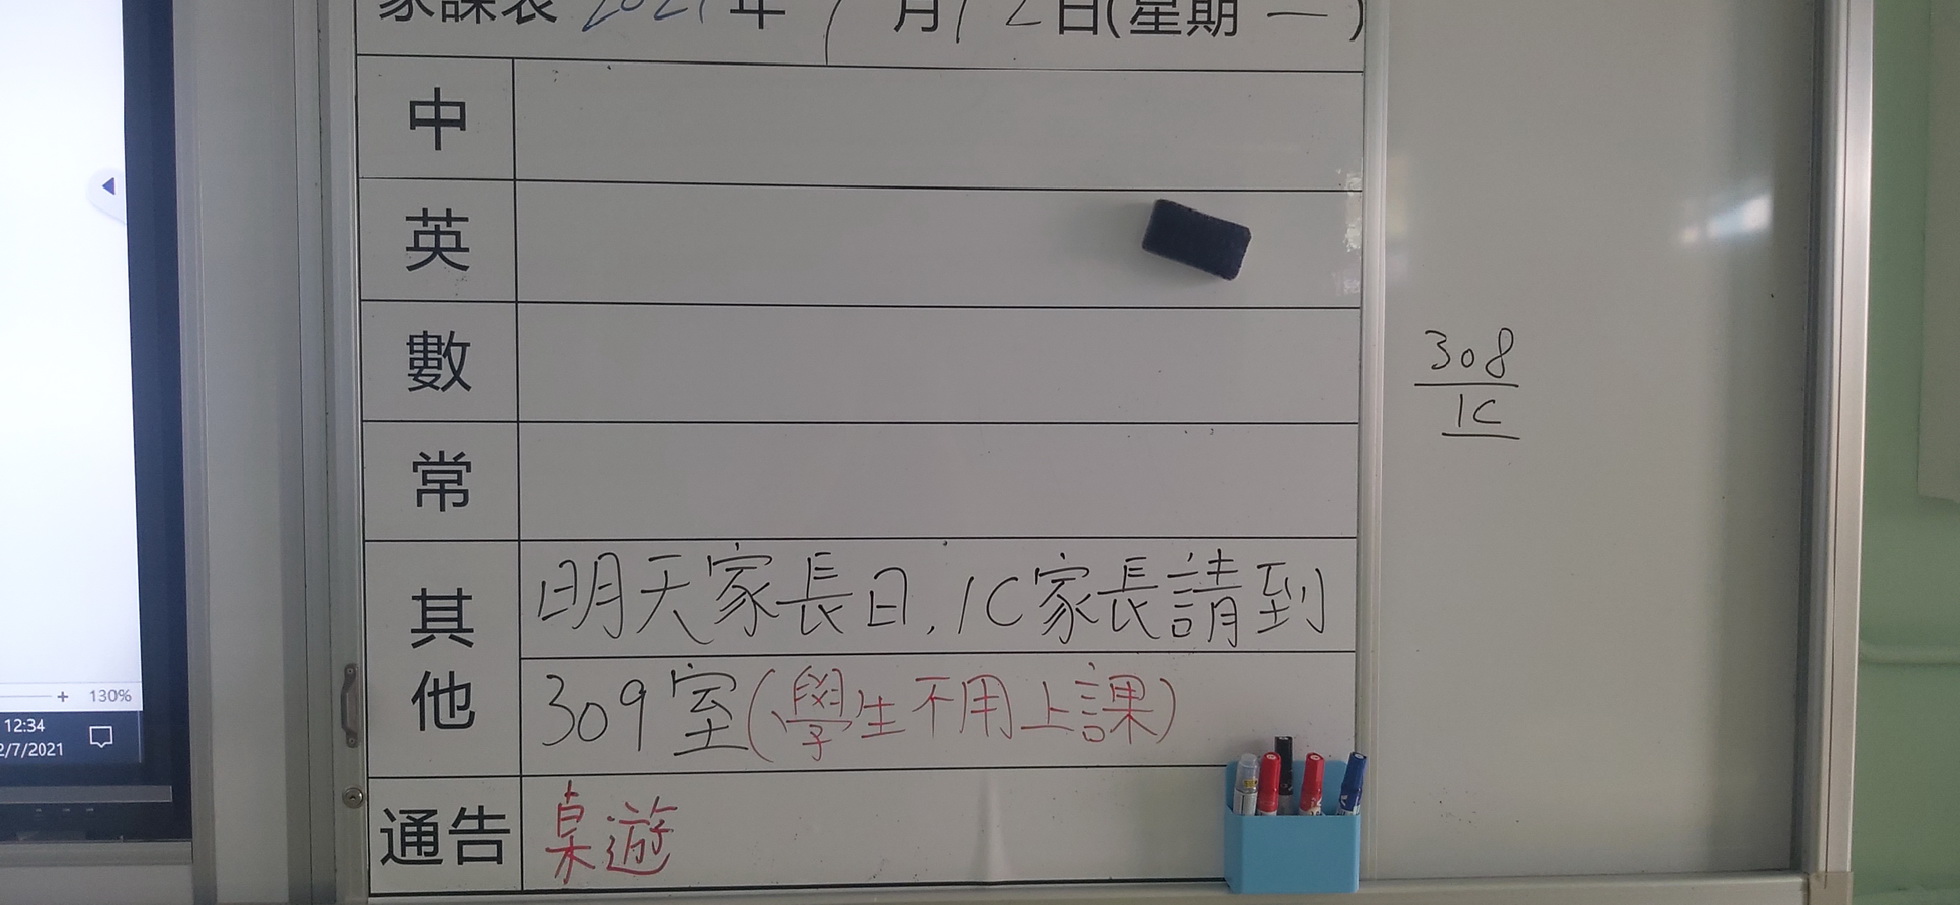 家課表 2021年7月12日(星期一)
中
英
數
常
其他
明天家長日,1C家長請到
309室(學生不用上課)
通告
桌遊
308
1C
+ 130%
12:34
2/7/2021